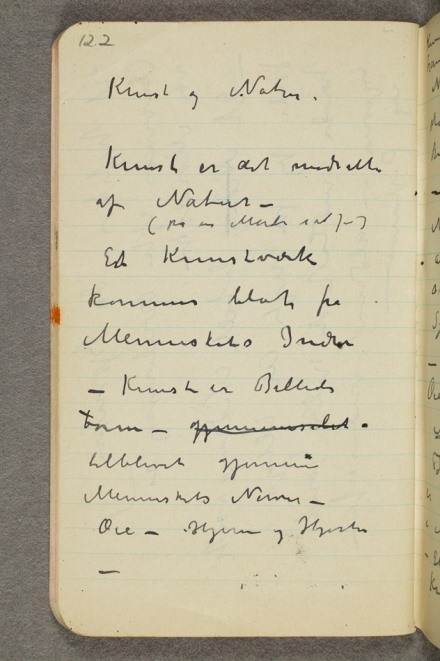 122
Kunst og Natur.
Kunst er det modsatte
af Natur –
(
Et Kunstværk
kommer blot fra
Menneskets Indre
– Kunst er Billeds
Form –
tilblevet gjennem
Menneskets Nerver –
Øie – Hjerne og Hjerte
–